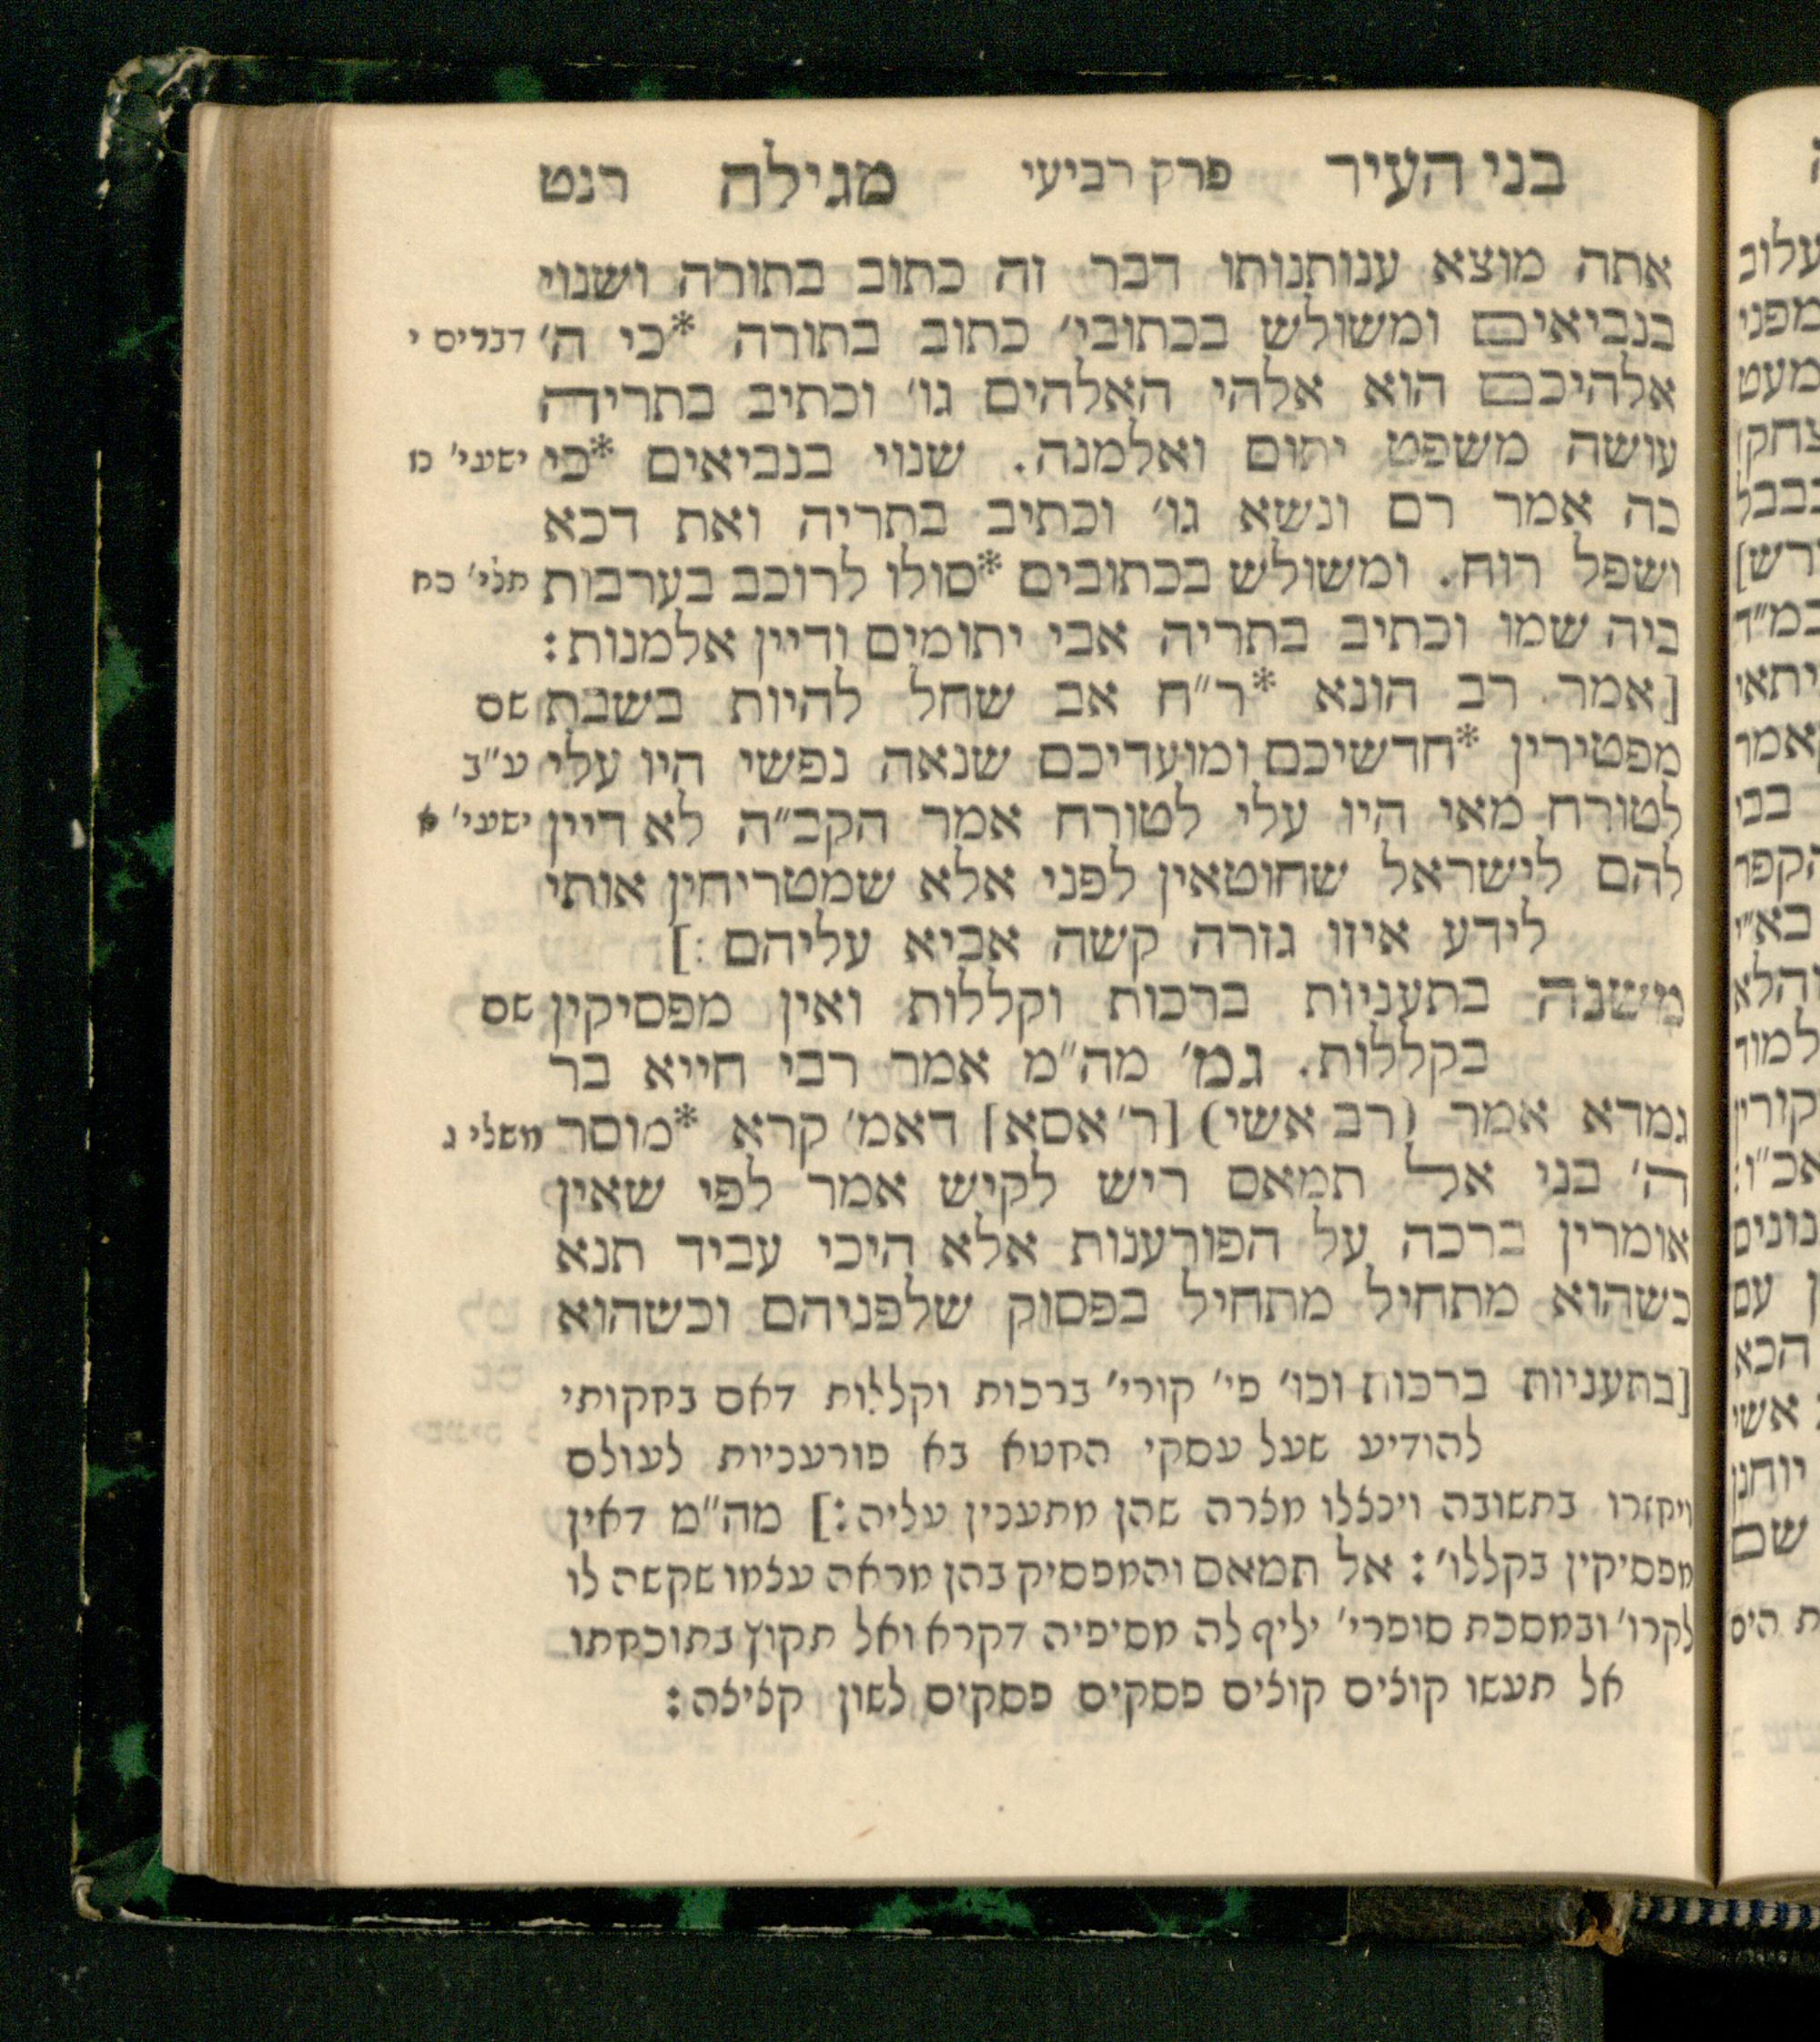 בני העיר פרק רביעי מגילה רנט
אתה מוצא ענותנותו דבר זה כתוב בתורה ושנוי
בנביאים ומשולש בכתובי׳ כתוב בתורה *כי ה׳ דברים י
אלהיכם הוא אלהי האלהים גו׳ וכתיב בתריה
עושה משפט יתום ואלמנה. שנוי בנביאים *כי ישעי׳ נז
כה אמר רם ונשא גו׳ וכתיב בתריה ואת דכא
ושפל רוח. ומשולש בכתובים *סולו לרוכב בערבות
ביה שמו וכתיב בתריה אבי יתומים ודיין אלמנות:
[אמר רב הונא *ר״ח אב שחל להיות בשבת שם
מפטירין *חדשיכם ומועדיכם שנאה נפשי היו עלי ע״ב
לטורח מאי היו עלי לטורח אמר הקב״ה לא דיין ישעי׳ א
להם לישראל שחוטאין לפני אלא שמטריחין אותי
לידע איזו גזרה קשה אביא עליהם:]
משנה בתעניות ברכות וקללות ואין מפסיקין שם
בקללות. גמ׳ מה״מ אמר רבי חייא בר
גמדא אמר (רב אשי) [ר׳ אסא] דאמ׳ קרא *מוסר משלי ג
ה׳ בני אל תמאס ריש לקיש אמר לפי שאין
אומרין ברכה על הפורענות אלא היכי עביד תנא
כשהוא מתחיל מתחיל בפסוק שלפניהם וכשהוא
[בתעניות ברכות וכו׳ פי׳ קורי׳ ברכות וקללות דאם בחקותי
להודיע שעל עסקי החטא בא פורעניות לעולם
ויחזרו בתשובה וינצלו מצרה שהן מתענין עליה:] מה״מ דאין
מפסיקין בקללו׳: אל תמאס והמפסיק בהן מראה עצמו שקשה לו
לקרו׳ ובמסכת סופרי׳ יליף לה מסיפיה דקרא ואל תקוץ בתוכחתו
אל תעשו קוצים קוצים פסקים פסקים לשון קציצה: